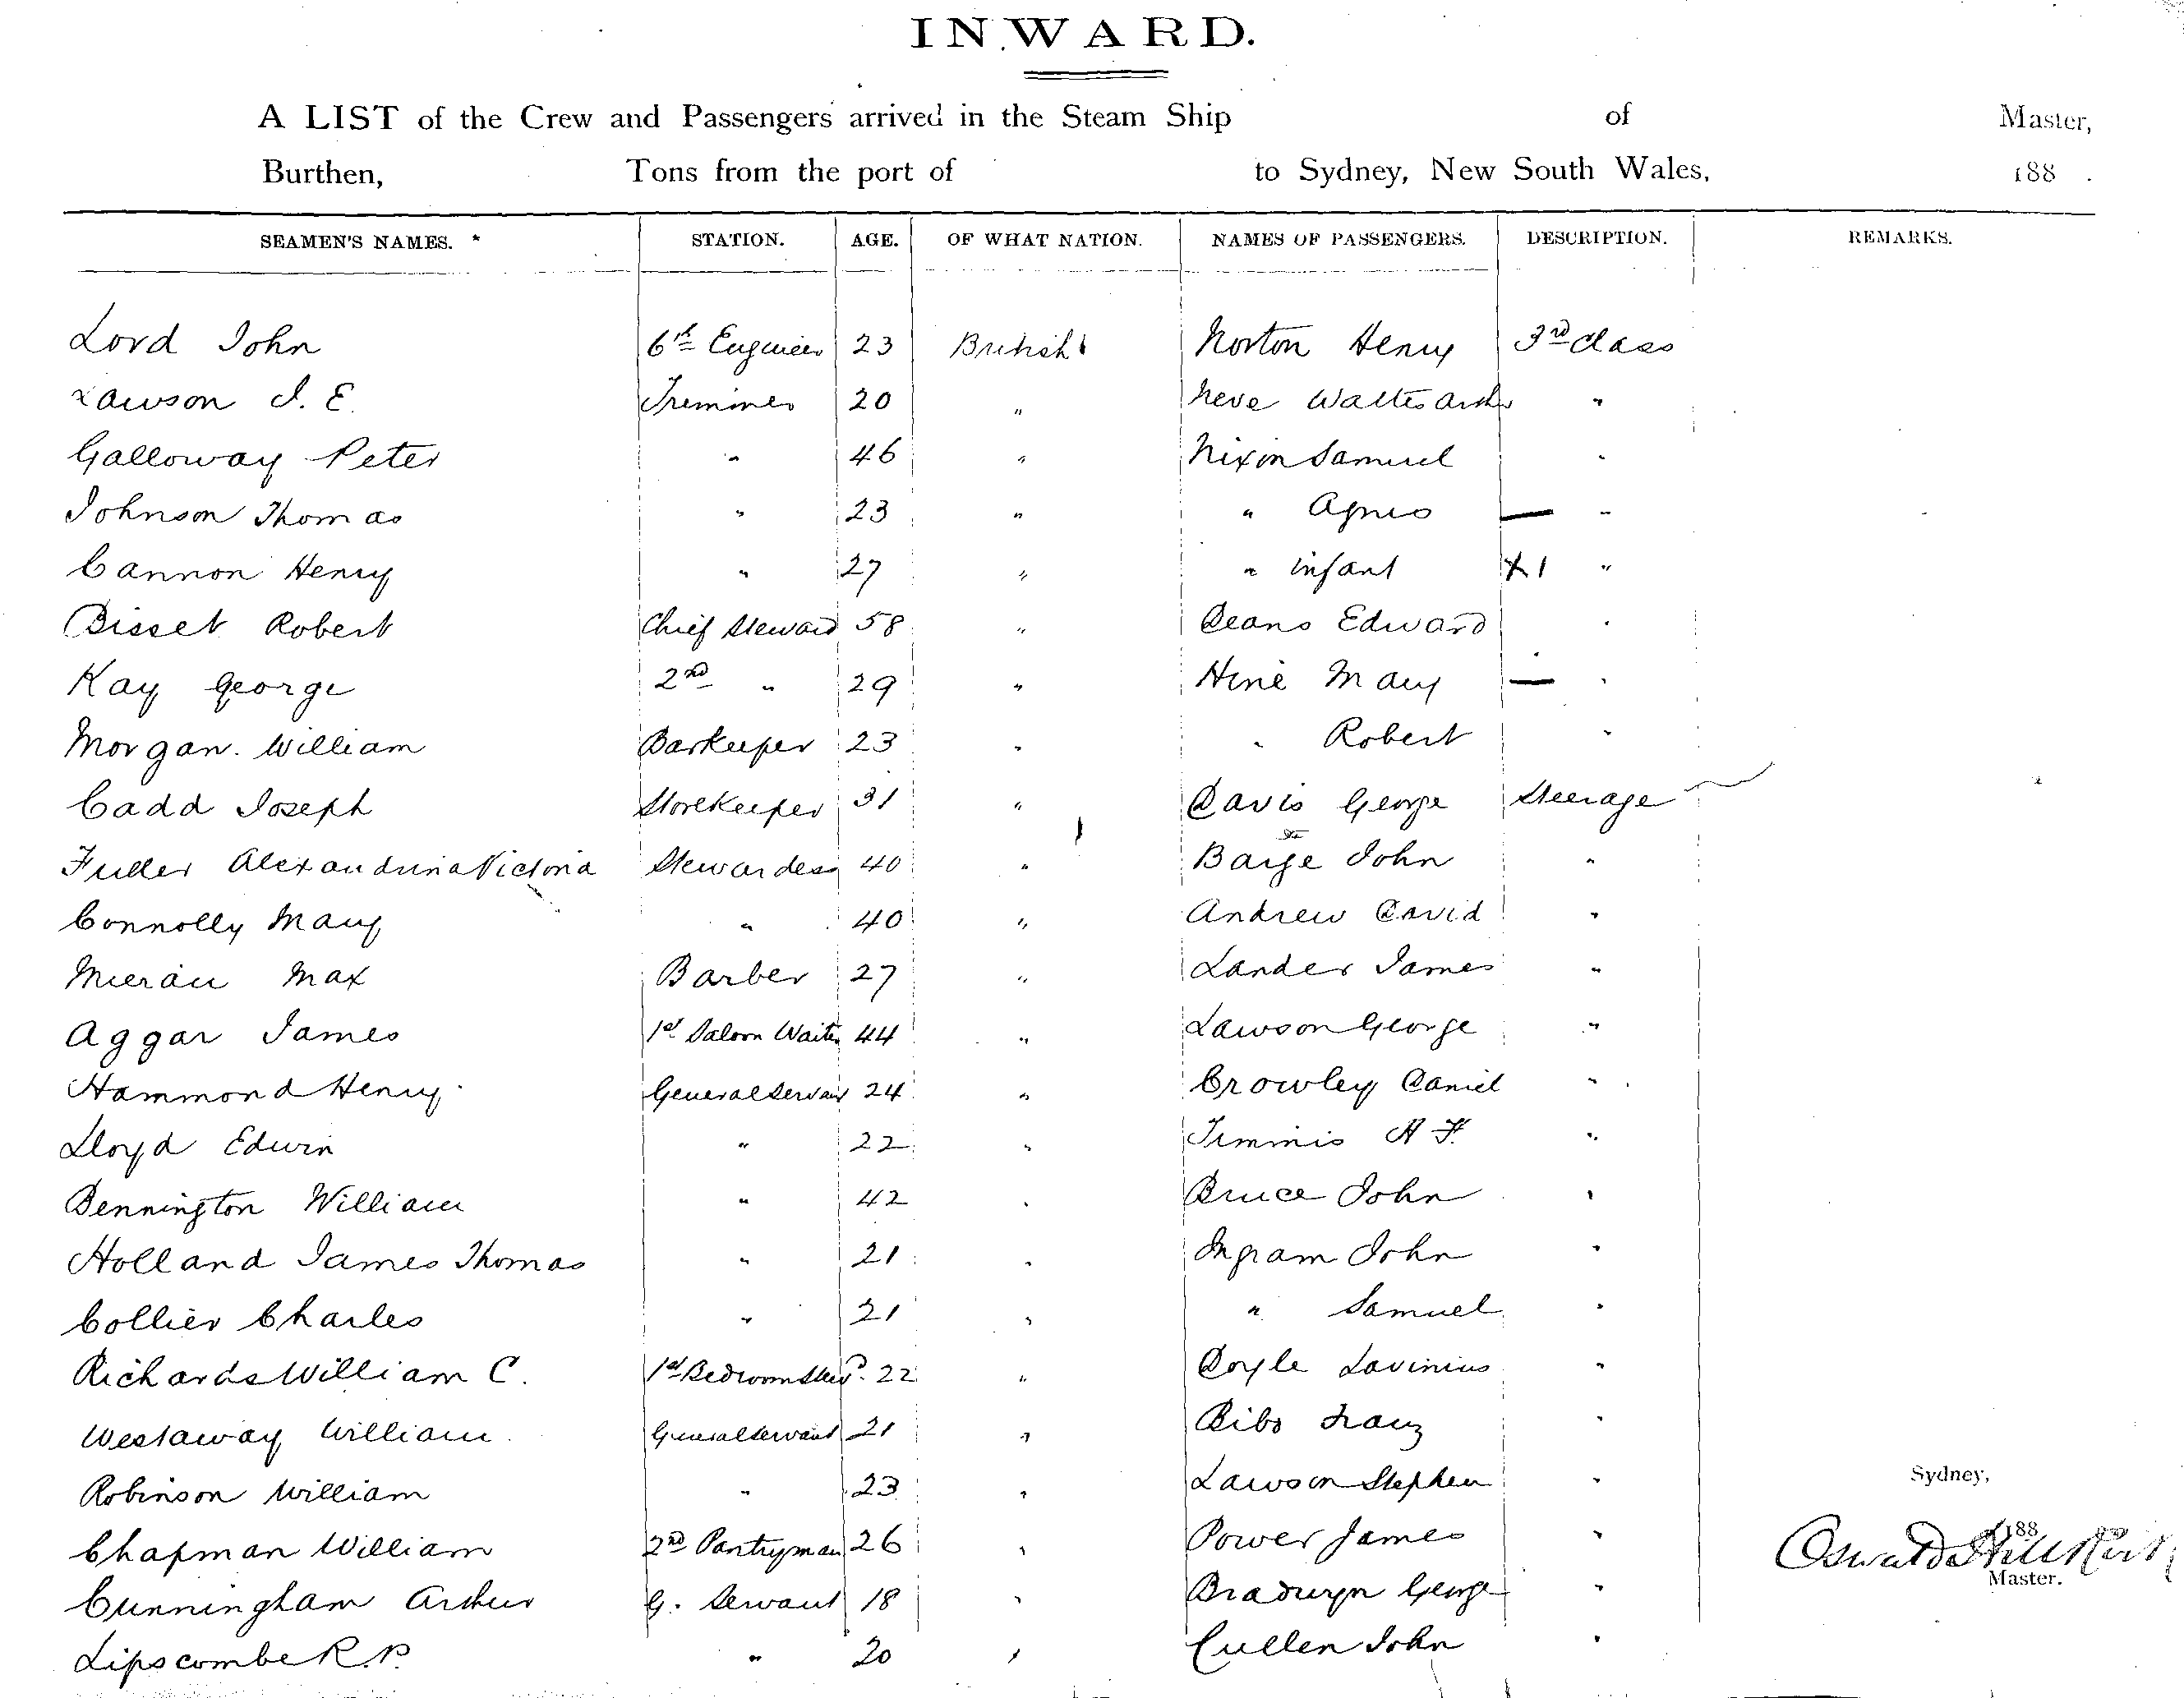 INWARD.
A LIST of the Crew and Passengers arrived in the Steam Ship of Master,
Burthen, Tons from the port of to Sydney, New South Wales, 188 .
SEAMEN'S NAMES. * STATION. AGE. OF WHAT NATION. NAMES OF PASSENGERS. DESCRIPTION. REMARKS.
Lord John 6th Engineer 23 British Norton Henry 3rd Class
Lawson J. E. Trimmer 20 " Neve Walter Arthur "
Galloway Peter " 46 " Nixon Samuel "
Johnson Thomas " 23 " " Agnes — "
Cannon Henry " 27 " " infant 1 "
Bisset Robert Chief Steward 58 " Deans Edward "
Kay George 2nd " 29 " Hine Mary — "
Morgan. William Barkeeper 23 " " Robert "
Cadd Joseph Storekeeper 31 " Davis George Steerage
Fuller Alexandrina Victoria Stewardess 40 " Barge John "
Connolly Mary " 40 " Andrew David "
Mierau Max Barber 27 " Lander James "
Aggar James 1st Saloon Waiter 44 " Lawson George "
Hammond Henry General Servant 24 " Crowley Daniel "
Lloyd Edwin " 22 " Timmis H F. "
Bennington William " 42 " Bruce John "
Holland James Thomas " 21 " Ingram John "
Collier Charles " 21 " " Samuel "
Richards William C. 1st Bedroom Stewd. 22 " Doyle Lavinius "
Westaway William. General Servant 21 " Bibo Franz "
Robinson William " 23 " Lawson Stephen "
Sydney,
Chapman William 2nd Pantryman 26 " Power James " 188
Oswald Hillkirk
Master.
Cunningham Arthur G. Servant 18 " Bradwyn George "
Lipscombe R.P. " 20 " Cullen John "